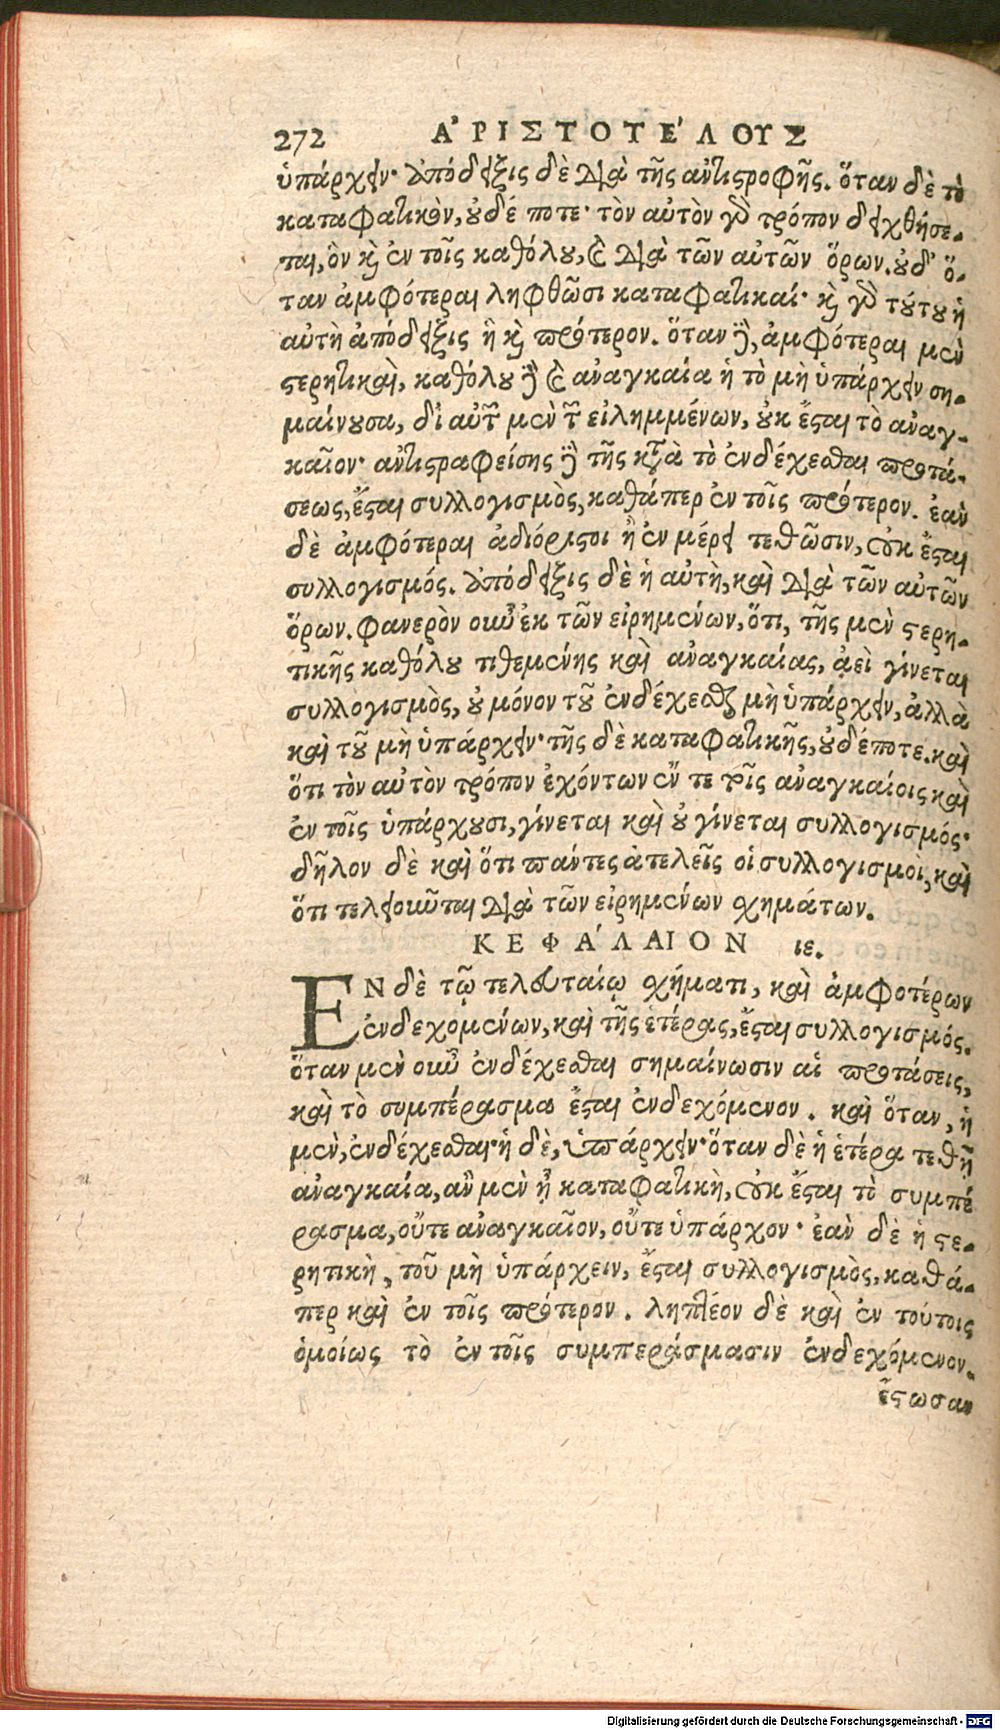 272 ἈΡΙΣΤΟΤΈΛΟΥΣ
ὑπάρχειν· ἀπόδειξις δὲ διὰ τῆς ἀντιστροφῆς. ὅταν δὲ τὸ
καταφατικὸν, οὐδέ ποτε· τὸν αὐτὸν γὰρ τρόπον δειχθήσε-
ται, ὃν καὶ ἐν τοῖς καθόλου, καὶ διὰ τῶν αὐτῶν ὅρων. οὐδ' ὅ-
ταν ἀμφότεραι ληφθῶσι καταφατικαί· καὶ γὰρ τούτου ἡ
αὐτὴ ἀπόδειξις ἣ καὶ πρότερον. ὅταν δὲ, ἀμφότεραι μὲν
στερητικαὶ, καθόλου δὲ καὶ ἀναγκαία ἡ τὸ μὴ ὑπάρχειν ση-
μαίνουσα, δι' αὐτῶν μὲν τῶν εἰλημμένων, οὐκ ἔσται τὸ ἀναγ-
καῖον· ἀντιστραφείσης δὲ τῆς κατὰ τὸ ἐνδέχεσθαι προτά-
σεως, ἔσται συλλογισμὸς, καθάπερ ἐν τοῖς πρότερον. ἐὰν
δὲ ἀμφότεραι ἀδιόριστοι ἢ ἐν μέρει τεθῶσιν, οὐκ ἔσται
συλλογισμός. ἀπόδειξις δὲ ἡ αὐτὴ, καὶ διὰ τῶν αὐτῶν
ὅρων. φανερὸν οὖν ἐκ τῶν εἰρημένων, ὅτι, τῆς μὲν στερη-
τικῆς καθόλου τιθεμένης καὶ ἀναγκαίας, ἀεὶ γίνεται
συλλογισμὸς, οὐ μόνον τοῦ ἐνδέχεσθαι μὴ ὑπάρχειν, ἀλλὰ
καὶ τοῦ μὴ ὑπάρχειν· τῆς δὲ καταφατικῆς, οὐδέποτε. καὶ
ὅτι τὸν αὐτὸν τρόπον ἐχόντων ἔν τε τοῖς ἀναγκαίοις καὶ
ἐν τοῖς ὑπάρχουσι, γίνεται καὶ οὐ γίνεται συλλογισμός·
δῆλον δὲ καὶ ὅτι πάντες ἀτελεῖς οἱ συλλογισμοὶ, καὶ
ὅτι τελειοῦνται διὰ τῶν εἰρημένων σχημάτων.
ΚΕΦΆΛΑΙΟΝ ιε.
ΕΝ δὲ τῷ τελευταίῳ σχήματι, καὶ ἀμφοτέρων
ἐνδεχομένων, καὶ τῆς ἑτέρας, ἔσται συλλογισμός.
ὅταν μὲν οὖν ἐνδέχεσθαι σημαίνωσιν αἱ προτάσεις,
καὶ τὸ συμπέρασμα ἔσται ἐνδεχόμενον. καὶ ὅταν, ἡ
μὲν, ἐνδέχεσθαι· ἡ δὲ, ὑπάρχειν· ὅταν δὲ ἡ ἑτέρα τεθῇ
ἀναγκαία, ἂν μὲν ᾖ καταφατικὴ, οὐκ ἔσται τὸ συμπέ
ρασμα, οὔτε ἀναγκαῖον, οὔτε ὑπάρχον· ἐὰν δὲ ἡ στε-
ρητικὴ, τοῦ μὴ ὑπάρχειν, ἔσται συλλογισμὸς, καθά-
περ καὶ ἐν τοῖς πρότερον. ληπτέον δὲ καὶ ἐν τούτοις
ὁμοίως τὸ ἐν τοῖς συμπεράσμασιν ἐνδεχόμενον.
ἔστωσαν
Digitalisierung gefördert durch die Deutsche Forschungsgemeinschaft - DFG